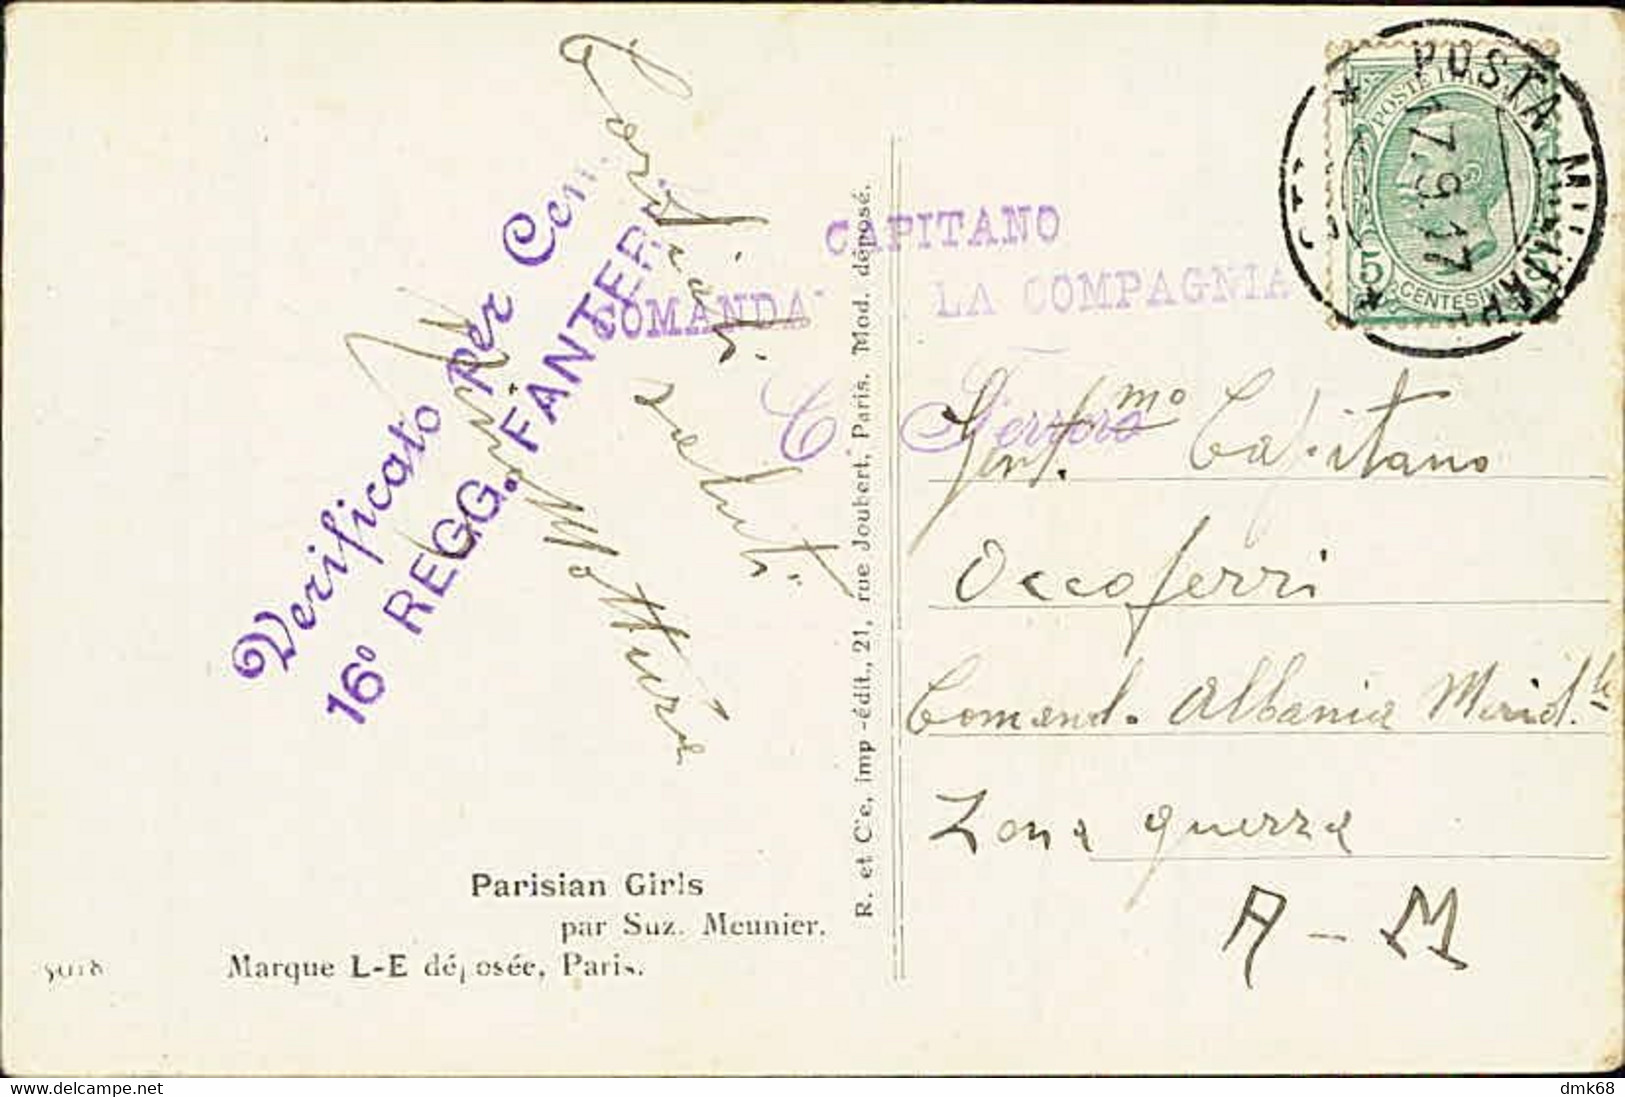 Cordiali
saluti
Verificato per Cen
16° REGG. FANTER
CAPITANO
COMANDA LA COMPAGNIA
C. Ferrero
POSTE ITALIANE
5 CENTESIMI
POSTA MILITARE
17.9.17
Gent.mo Capitano
Occoferri
Comand. Albania Merid.le
Zona guerra
A-M
R. et Cie, imp-édit., 21, rue Joubert, Paris. Mod. déposé.
Parisian Girls
par Suz. Meunier.
Marque L-E déposée, Paris.
dmk68